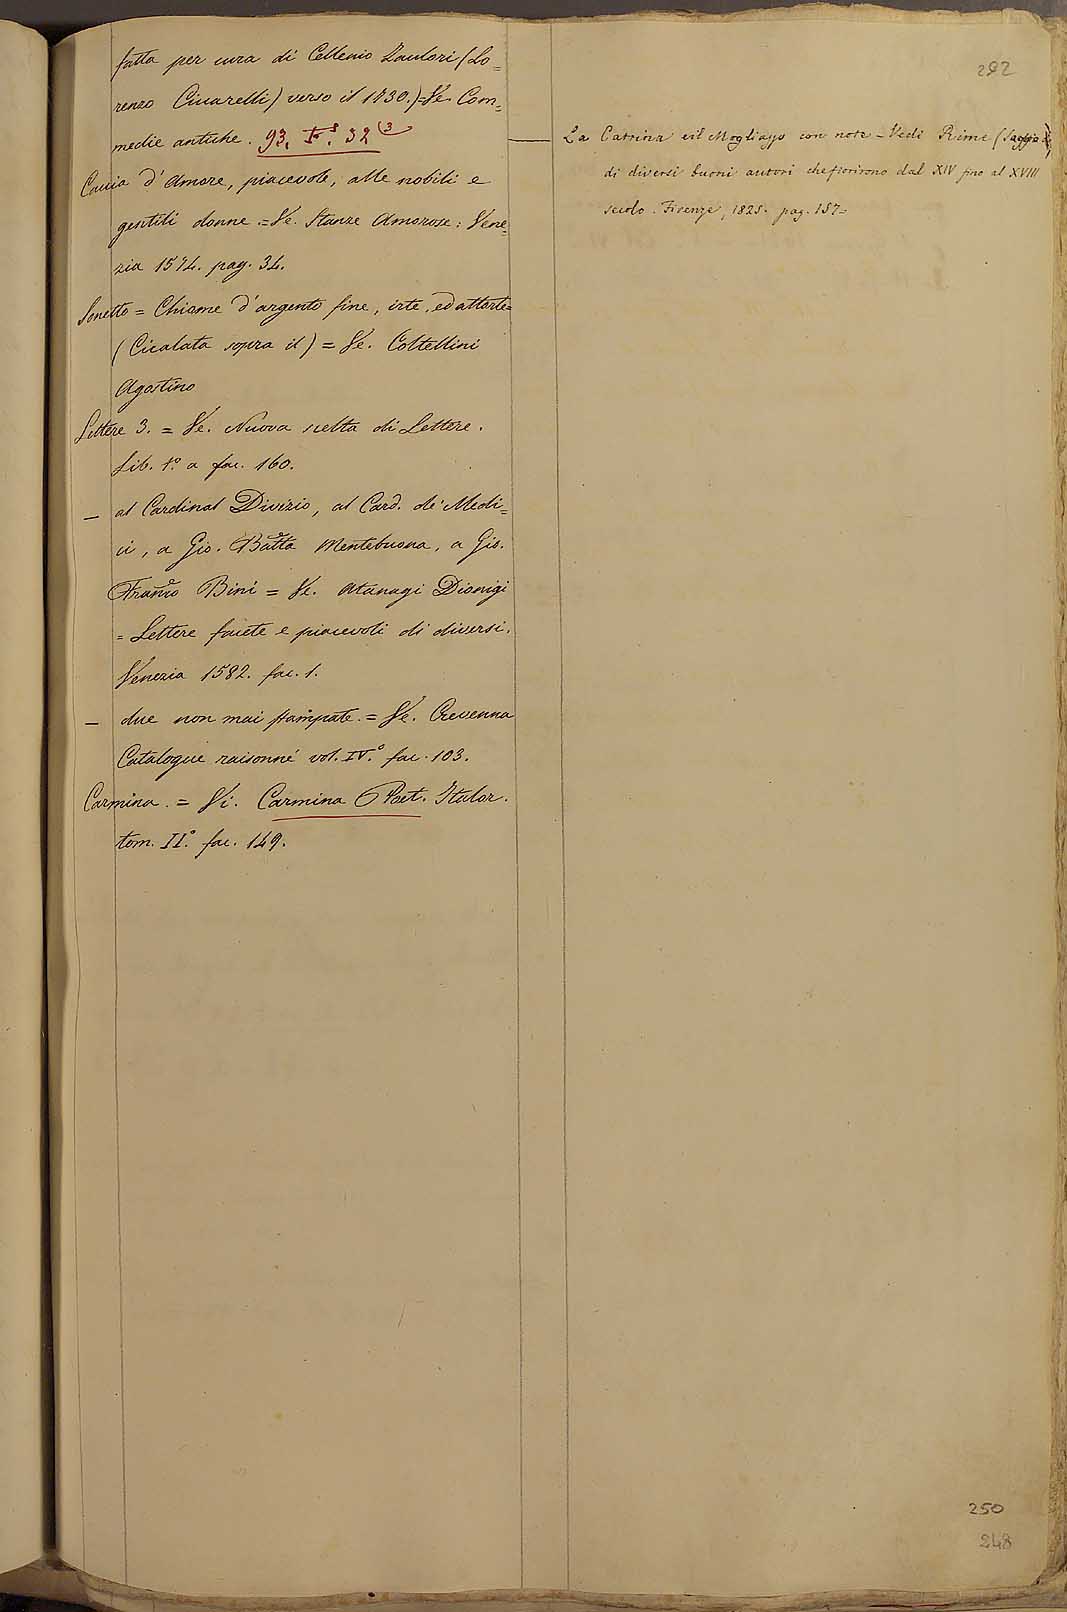 fatta per cura di Cellenio Zaulori (Lo=
renzo Ciccarelli) verso il 1730.)=Ve. Com=
medie antiche. 93. F.s 32 (3
Caccia d'Amore, piacevole, alle nobili e
gentili donne.=Ve. Stanze Amorose: Vene=
zia 1574. pag. 34.
Sonetto = Chiome d'argento fine, irte, ed attorte=
(Cicalata sopra il) = Ve. Coltellini
Agostino
Lettere 3. = Ve. Nuova scelta di Lettere.
Lib. 1.º a fac. 160.
— al Cardinal Divizio, al Card. de' Medi=
ci, a Gio. Batta Montebuona, a Gio.
Franco Bini = Ve. Atanagi Dionigi
= Lettere facete e piacevoli di diversi.
Venezia 1582. fac. 1.
— due non mai stampate. = Ve. Crevenna
Catalogue raisonné vol. IV.º fac. 103.
Carmina. = Vi. Carmina Poet. Italor.
tom. II.º fac. 149.
292
La Catrina e il Mogliazzo con note - Vedi Rime (Saggio di)
di diversi buoni autori che fiorirono dal XIV fino al XVIII
secolo. Firenze, 1825. pag. 157=
250
248